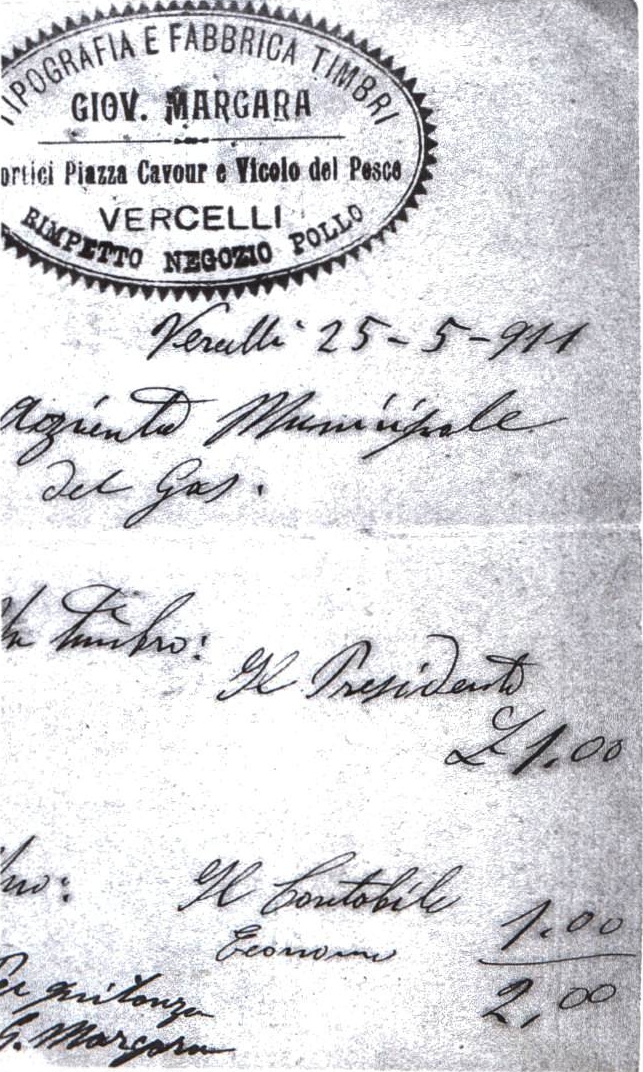 TIPOGRAFIA E FABBRICA TIMBRI
GIOV. MARGARA
ortici Piazza Cavour e Vicolo del Pesce
VERCELLI
RIMPETTO NEGOZIO POLLO
Vercelli 25-5-911
Azienda Municipale
del Gas.
timbro:
Il Presidente
£ 1.00
Il Contabile
1.00
Economo
2,00
Per quitanza
G. Margara